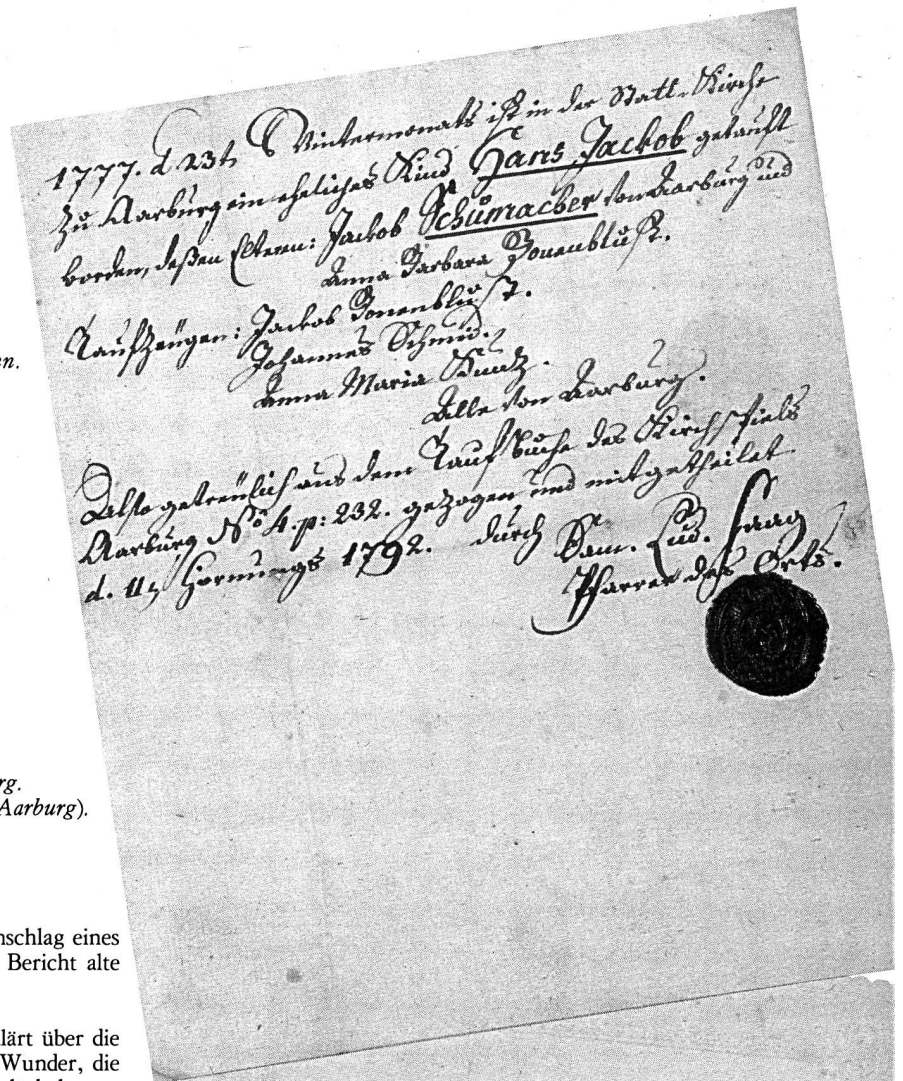 1777. d 23t. Wintermonats ist in der Statt-Kirche
zu Aarburg ein eheliches Kind Hans Jackob getauft
worden, deßen Elteren: Jackob Schumacher von Aarburg und
Anna Barbara Bonenblust.
Taufzeugen: Jackob Bonenblust.
Johannes Schmid.
Anna Maria Kuntz.
Alle von Aarburg.
Also getreülich aus dem Taufbuche des Kirchspiels
Aarburg No 4. p: 232. gezogen und mitgetheilet
d. 11n Hornungs 1792. durch Sam. Lud. Haag
Pfarrer des Orts.
en.
rg.
Aarburg).
nschlag eines
Bericht alte
lärt über die
Wunder, die